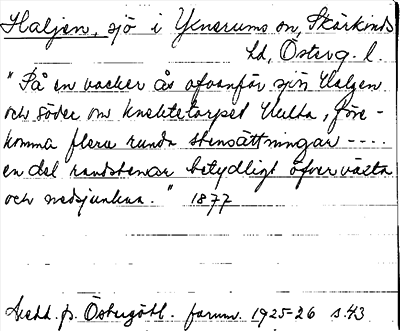 Haljen, sjö i Yxnerums sn, Skärkinds
hd, Österg. l.
"På en vacker ås ofvanför sjön Haljen
och söder om knektetorpet Hulta, före-
komma flera runda stensättningar ----
en del randstenar betydligt öfverväxta
och nedsjunkna." 1877
Medd. fr. Östergötl. fornm. 1925-26 s. 43